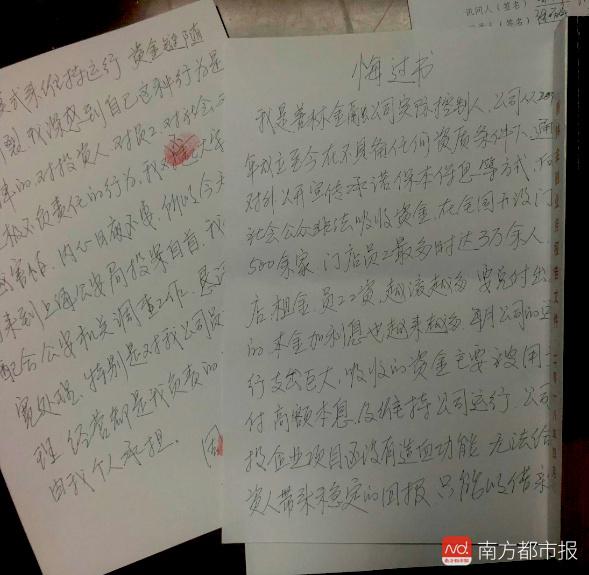 悔过书
我是善林金融公司实际控制人,公司从2013
年成立至今在不具备任何资质条件下,通
对外公开宣传承诺保本付息等方式,向
社会公众非法吸收资金,在全国开设门
500余家,门店员工最多时达3万余人,
店租金、员工工资,越滚越多,要兑付出
的本金加利息也越来越多,每月公司的运
行支出巨大,吸收的资金主要被用于
付高额本息,及维持公司运行,公司
投企业项目还没有造血功能,无法给
资人带来稳定的回报,只能以借新
式来维持运行,资金链随
裂,我深感到自己这种行为是
的,对投资人、对员工、对社会
极不负责任的行为,我
害怕,内心日夜不安,所以今天
来到上海公安局投案自首,我
配合公安机关调查工作,恳请
宽处理,特别是对我公司员
理,经营都是我负责的
由我个人承担。
周
讯问人(签名)
(签名)
南方都市报